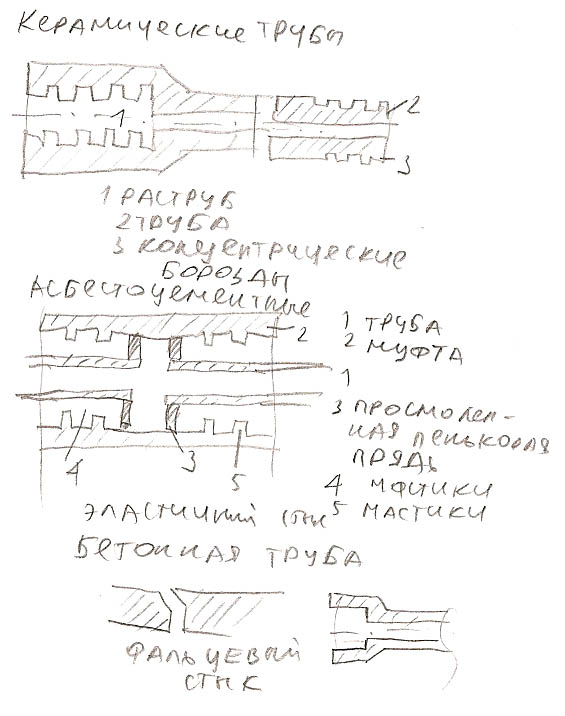 КЕРАМИЧЕСКИЕ ТРУБЫ
1
2
3
1 РАСТРУБ
2 ТРУБА
3 КОНЦЕНТРИЧЕСКИЕ
БОРОЗДЫ
АСБЕСТОЦЕМЕНТНЫЕ
2
1 ТРУБА
2 МУФТА
1
3 ПРОСМОЛЕН-
НАЯ ПЕНЬКОВАЯ
ПРЯДЬ
4 3 5
4 МАСТИКИ
ЭЛАСТИЧНЫЙ СТЫК
5 МАСТИКИ
БЕТОННАЯ ТРУБА
ФАЛЬЦЕВЫЙ
СТЫК